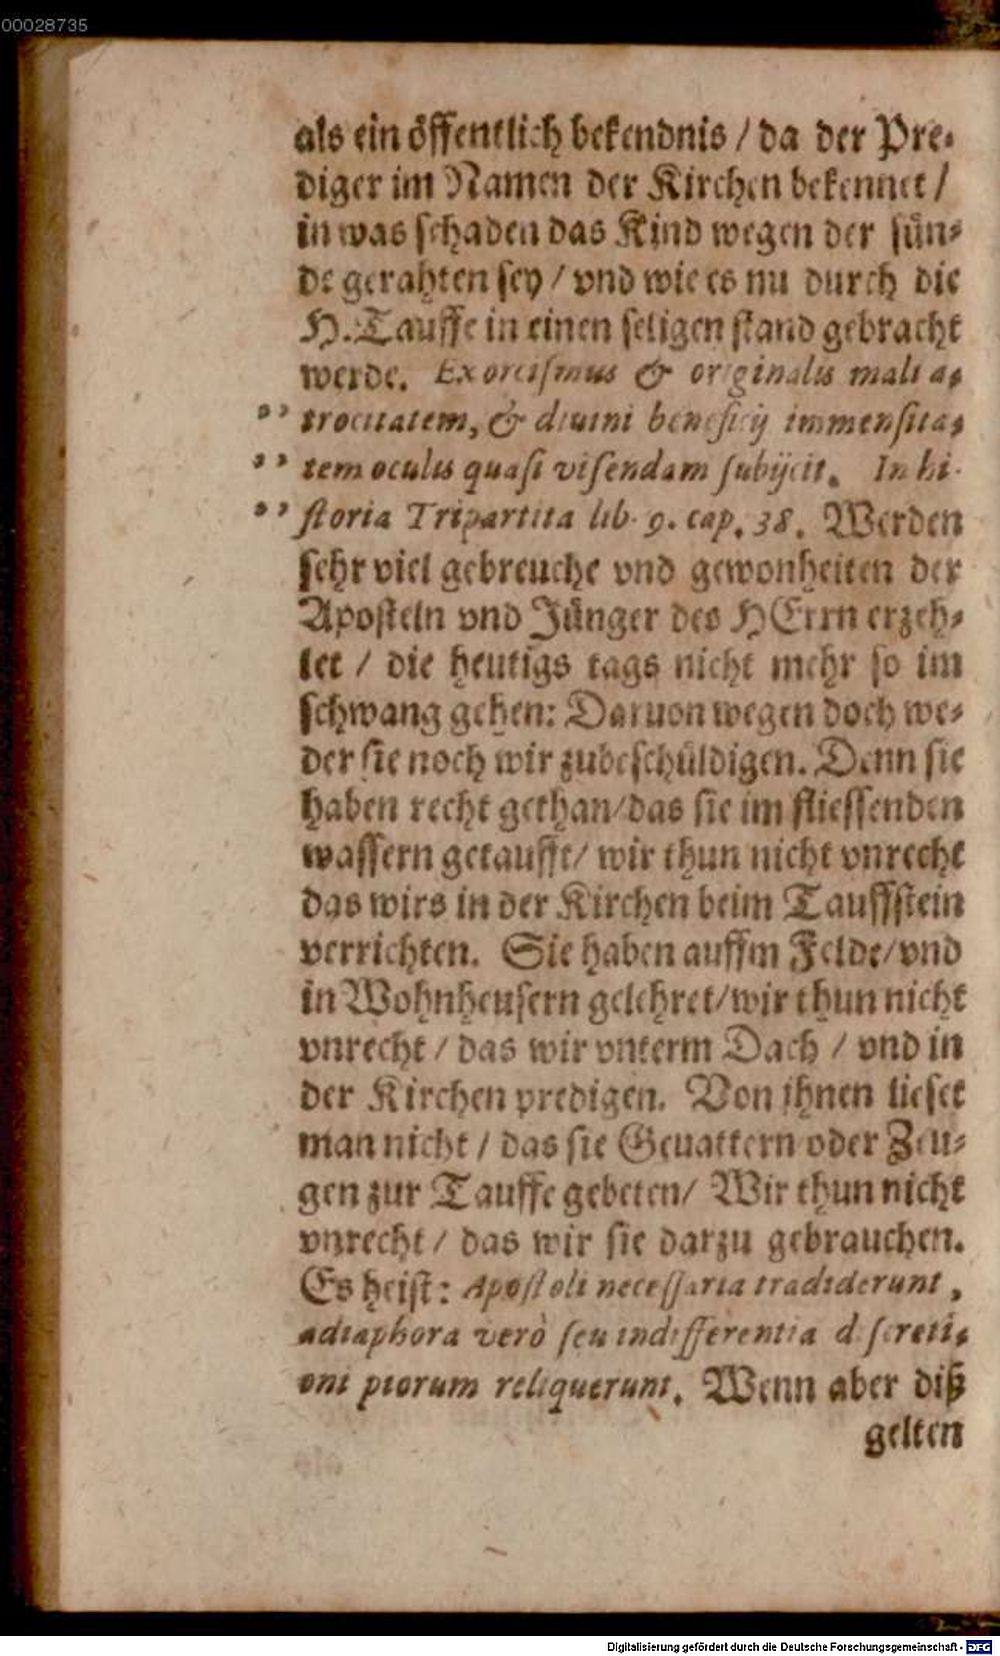 00028735
als ein öffentlich bekendnis / da der Pre-
diger im Namen der Kirchen bekennet /
in was schaden das Kind wegen der sün-
de gerahten sey / vnd wie es nu durch die
H. Tauffe in einen seligen stand gebracht
werde. Exorcismus & originalis mali a-
trocitatem, & diuini beneficij immensita-
tem oculis quasi visendam subijcit. In hi-
storia Tripartita lib. 9. cap. 38. Werden
sehr viel gebreuche vnd gewonheiten der
Aposteln vnd Jünger des HErrn erzeh-
let / die heutigs tags nicht mehr so im
schwang gehen: Daruon wegen doch we-
der sie noch wir zubeschüldigen. Denn sie
haben recht gethan/das sie im fliessenden
wassern getaufft/ wir thun nicht vnrecht
das wirs in der Kirchen beim Tauffstein
verrichten. Sie haben auffm Felde/vnd
in Wohnheusern gelehret/wir thun nicht
vnrecht / das wir vnterm Dach / vnd in
der Kirchen predigen. Von ihnen lieset
man nicht / das sie Geuattern oder Zeu-
gen zur Tauffe gebeten/ Wir thun nicht
vnrecht / das wir sie darzu gebrauchen.
Es heist: Apostoli necessaria tradiderunt,
adiaphora verò seu indifferentia discreti-
oni piorum reliquerunt. Wenn aber diß
gelten
Digitalisierung gefördert durch die Deutsche Forschungsgemeinschaft - DFG